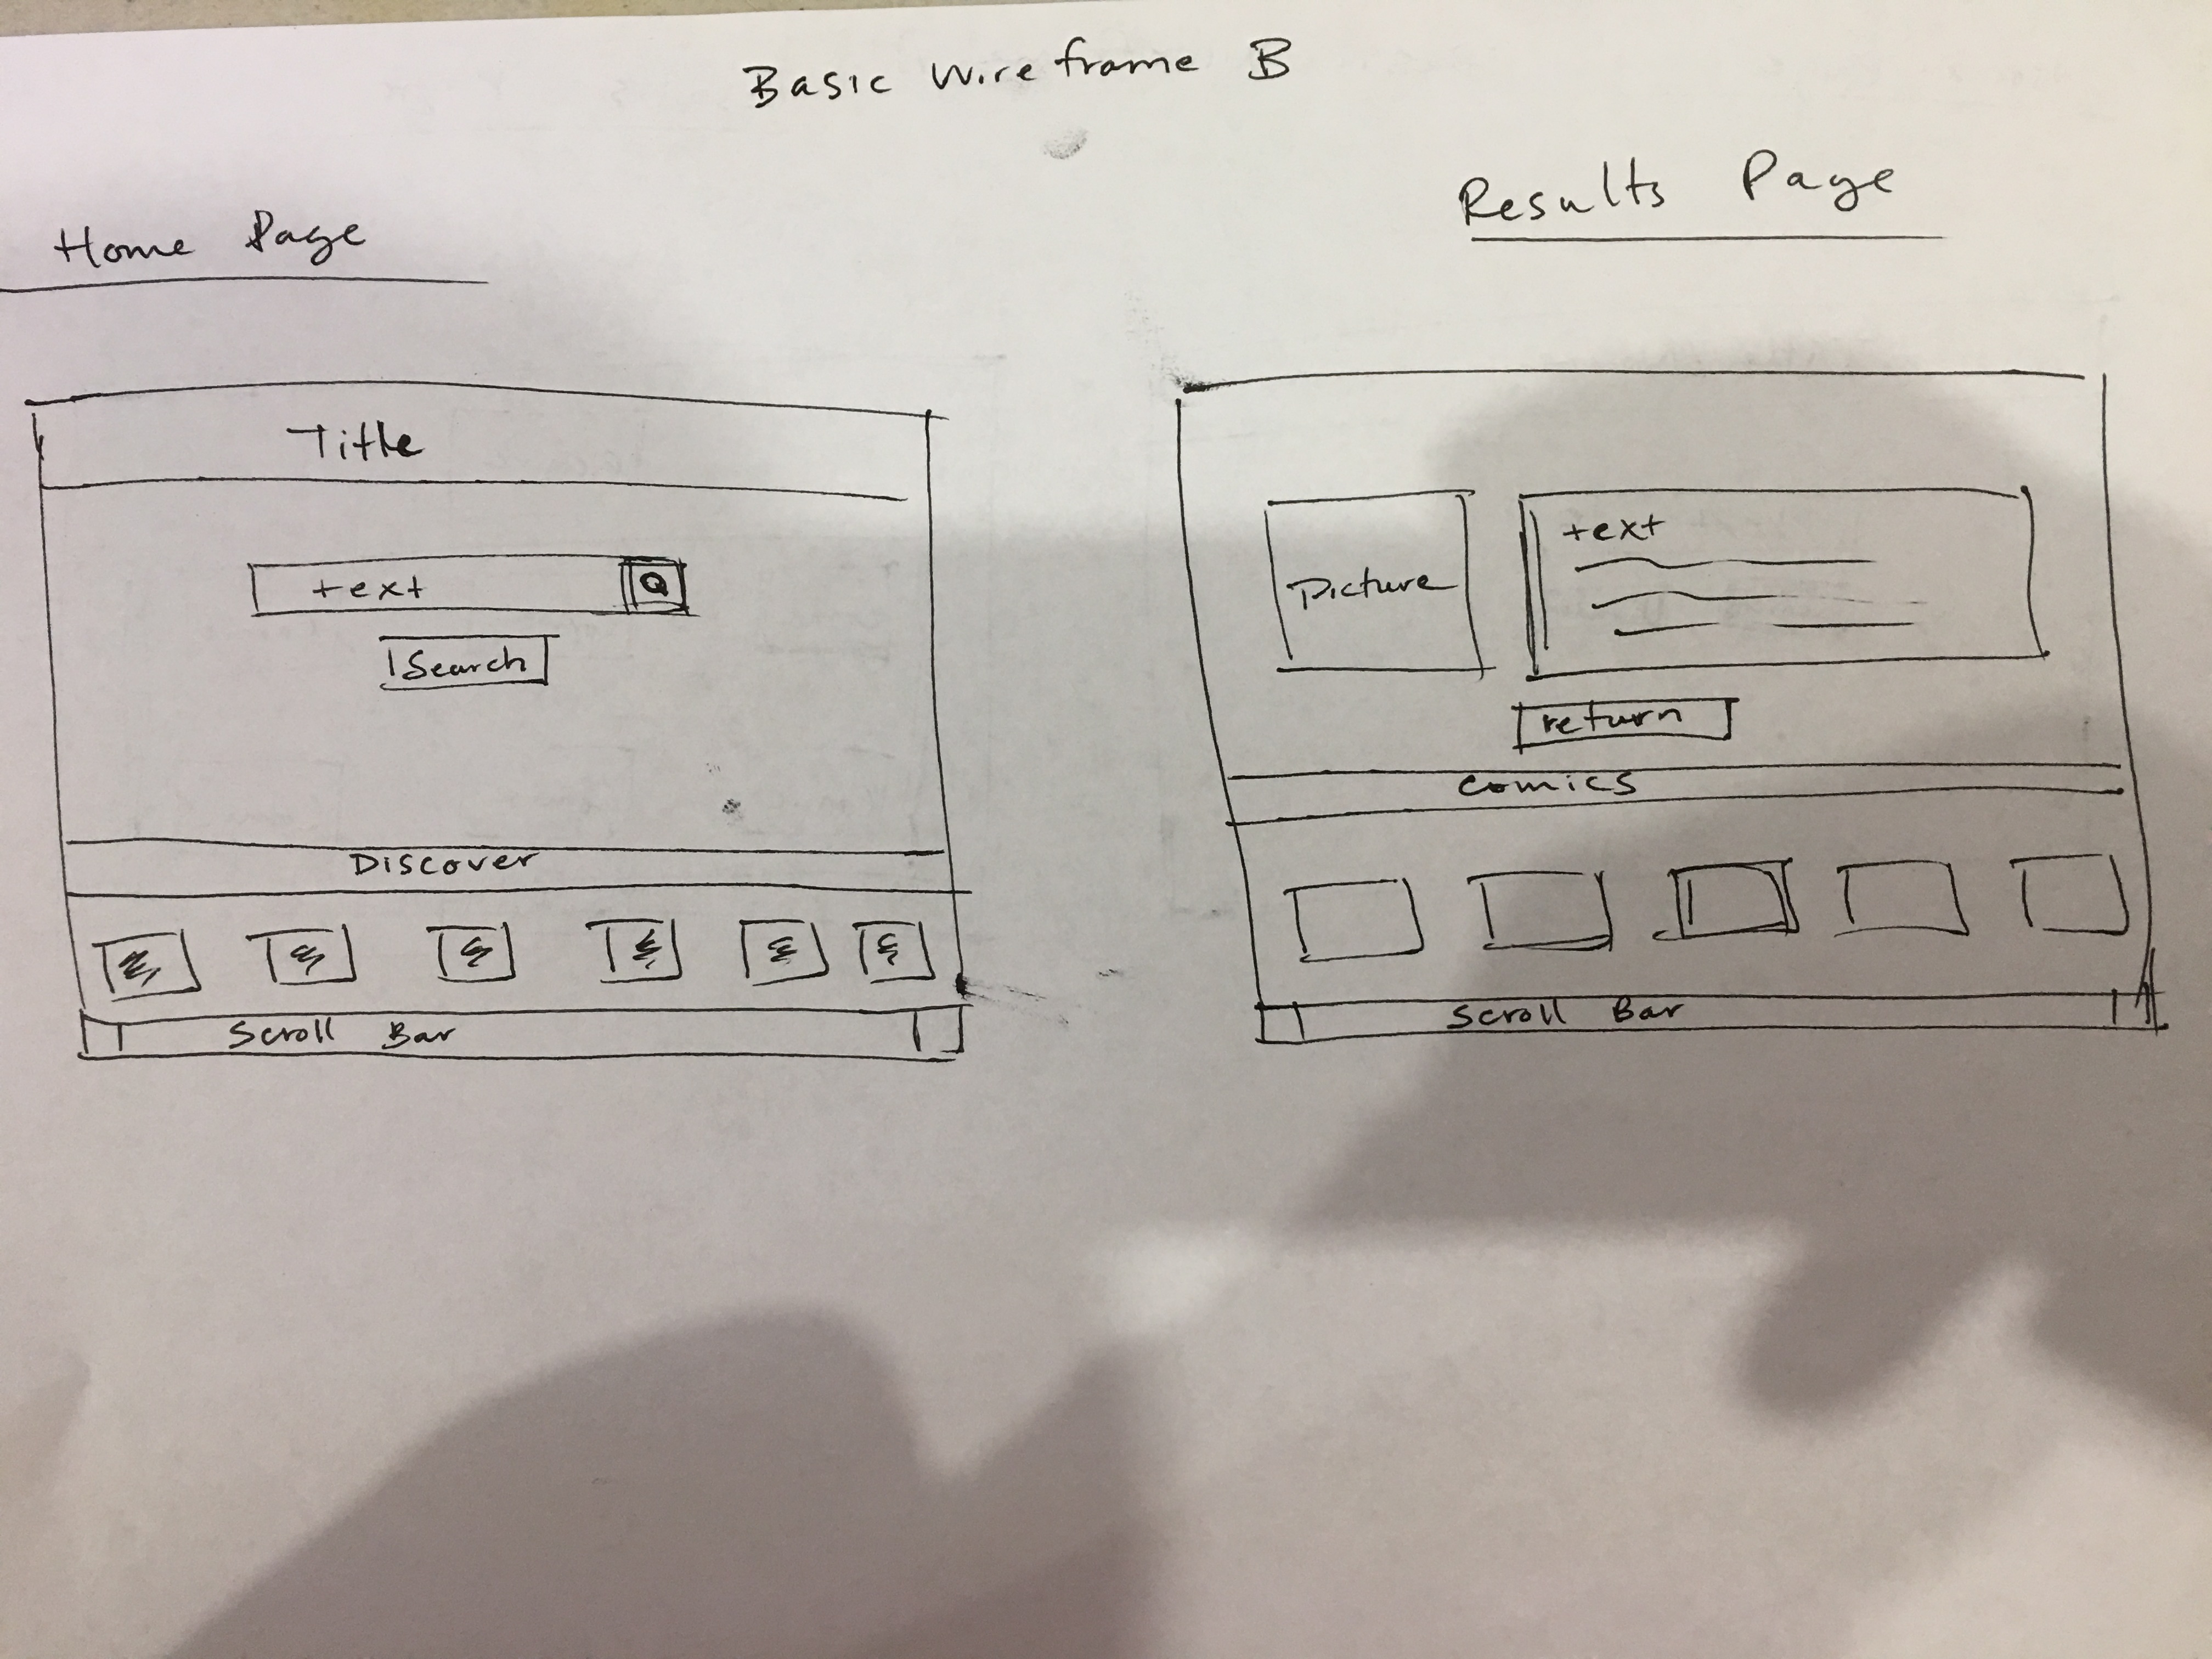 Basic wireframe B
Home Page
Title
text
Search
Discover
Scroll Bar
Results Page
Picture
text
return
comics
Scroll Bar